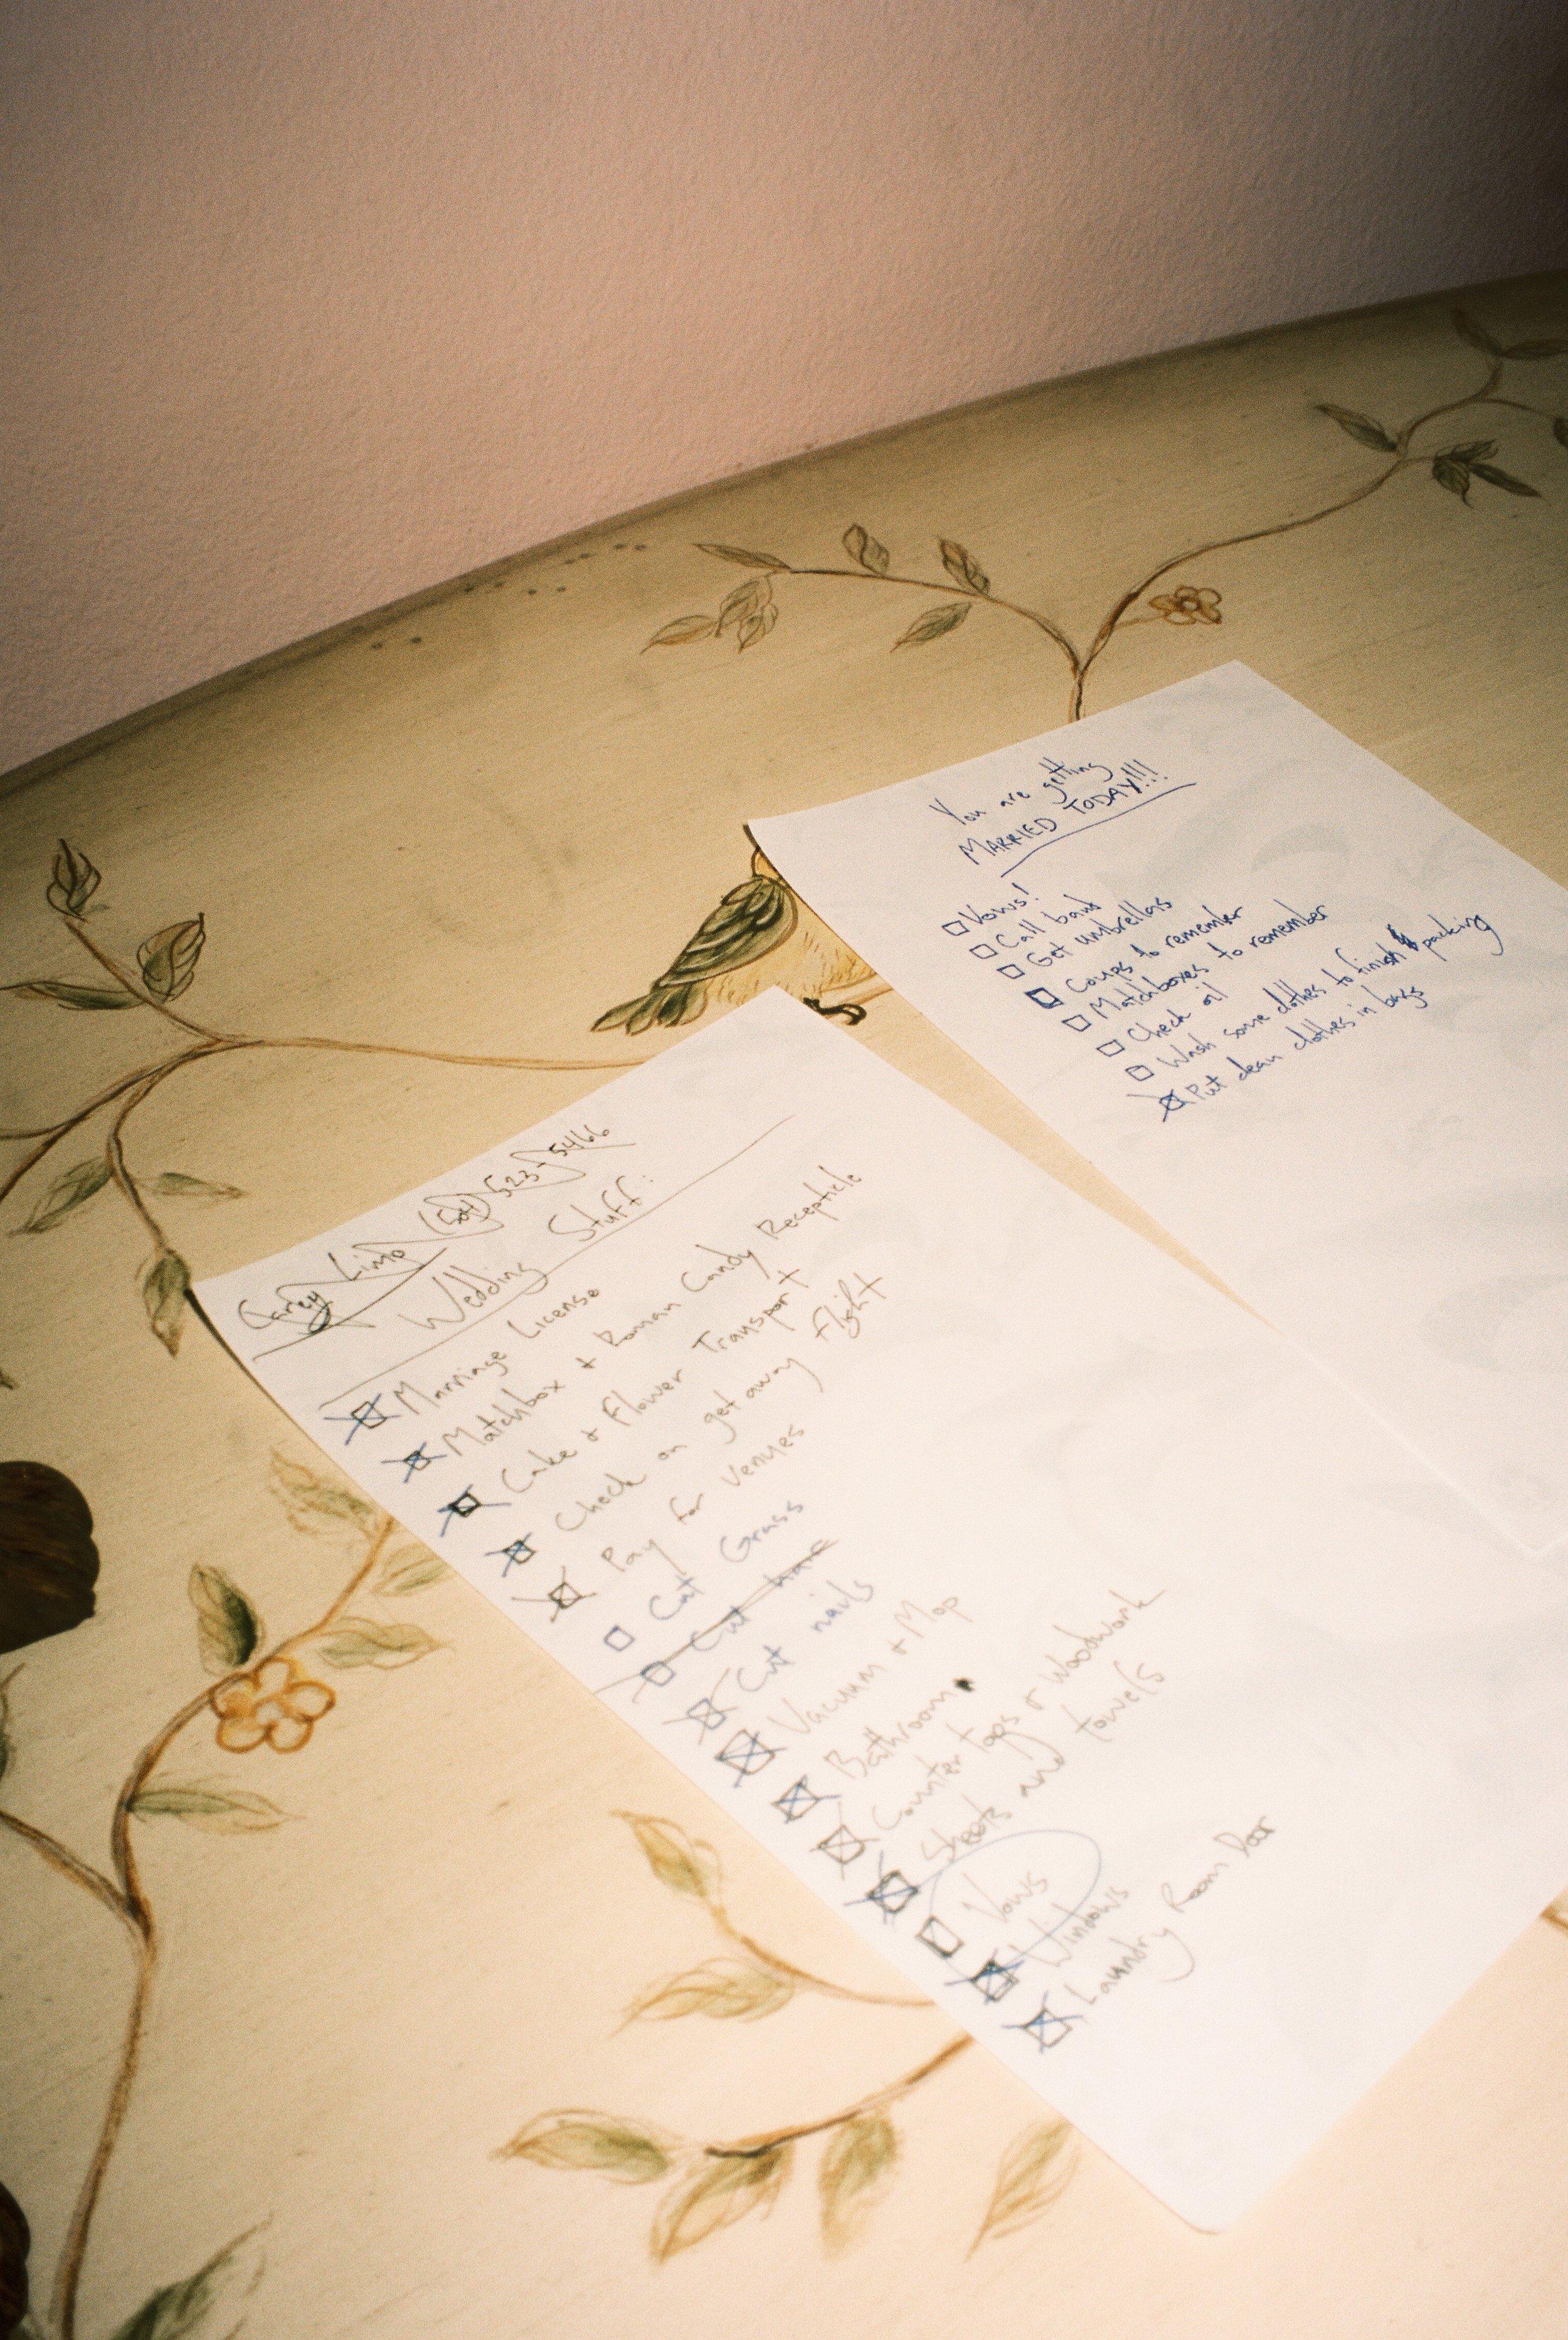 Carey Limo (504) 523-5466
Wedding Stuff:
Marriage License
Matchbox + Roman Candy Recepticle
Cake & Flower Transport
Check on get away flight
Pay for Venues
Cut Grass
Cut hair
Cut nails
Vacuum + Mop
Bathroom
Counter tops & Woodwork
Sheets and towels
Vows
Windows
Laundry Room Door
You are getting
MARRIED TODAY!!!
Vows!
Call band
Get umbrellas
Coups to remember
Matchboxes to remember
Check oil
Wash some clothes to finish packing
Put clean clothes in bags